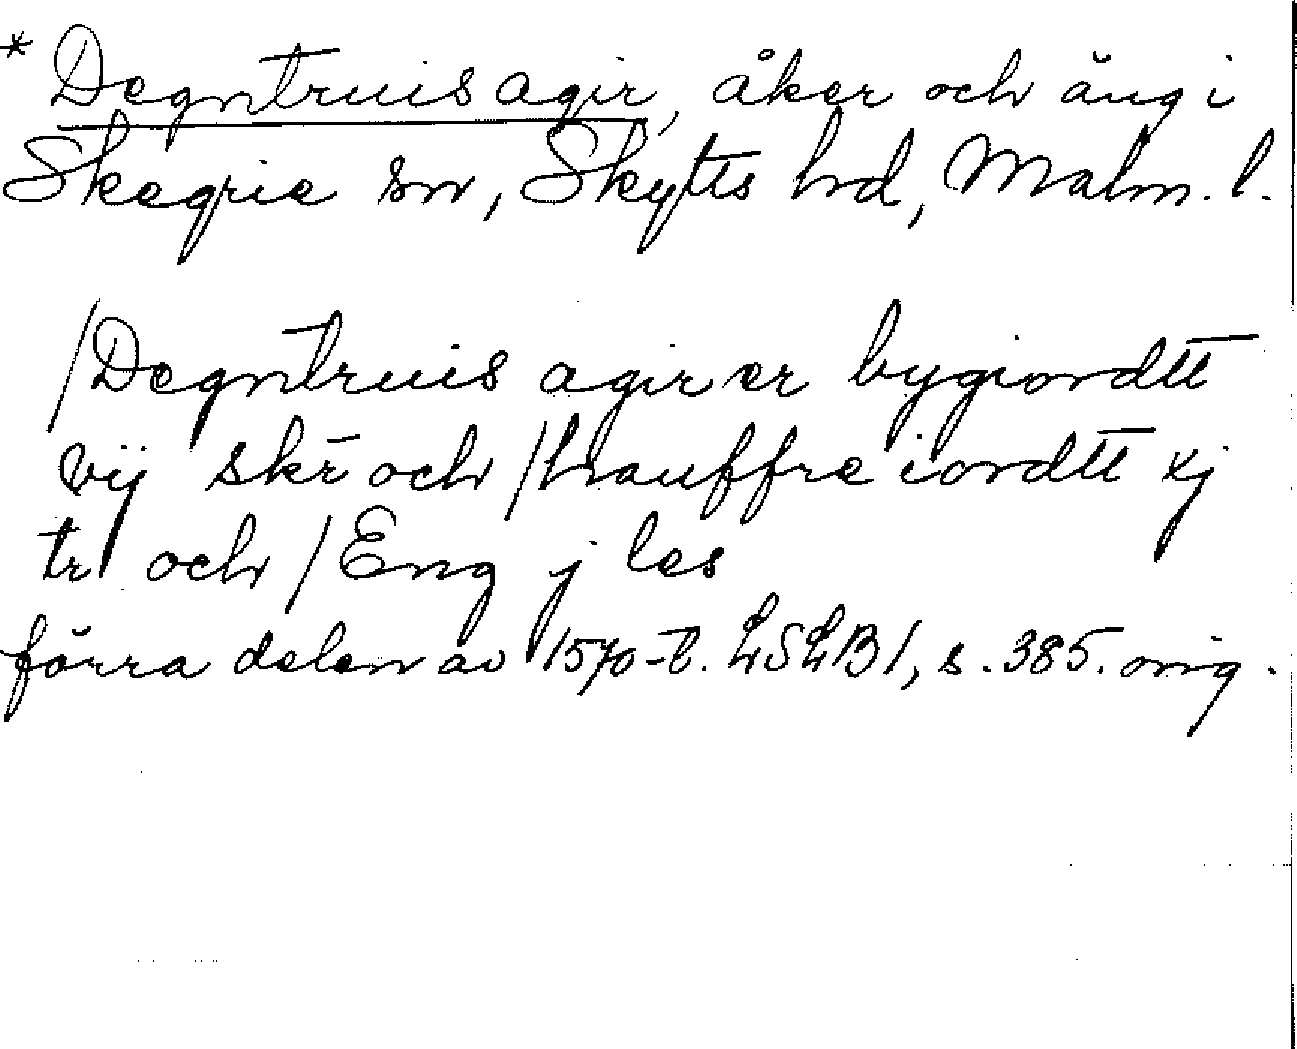 * Degntruis agir, åker och äng i
Skegrie sn, Skytts hd, Malm. l.
/Degntruis agir er bygiordtt
vij skr̄ och /hauffre iordtt xj
tr och / Eng j les
förra delen av 1570-t. LSLB1, s. 385. orig.